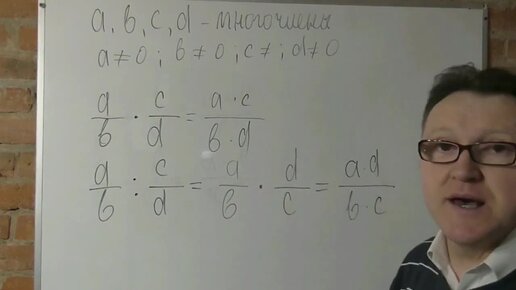 a, b, c, d – многочлены
a ≠ 0 ; b ≠ 0 ; c ≠ ; d ≠ 0
a/b · c/d = a · c / b · d
a/b : c/d = a/b · d/c = a · d / b · c